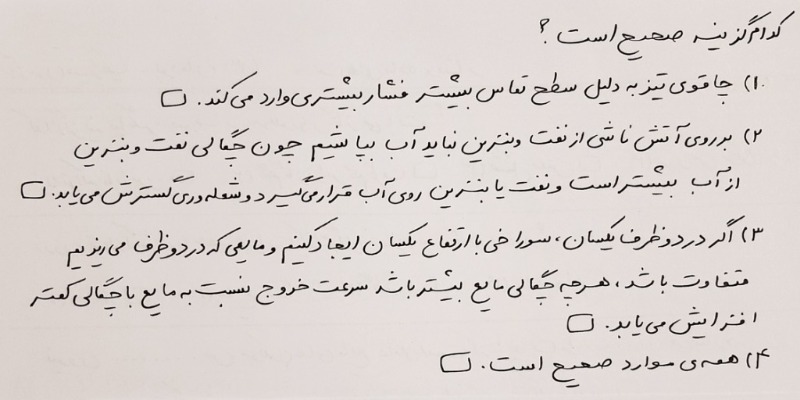 کدام گزینه صحیح است؟
۱) چاقوی تیز به دلیل سطح تماس بیشتر فشار بیشتری وارد می‌کند.
۲) بر روی آتش ناشی از نفت و بنزین نباید آب بپاشیم چون چگالی نفت و بنزین
از آب بیشتر است و نفت یا بنزین روی آب قرار می‌گیرد و شعله‌وری گسترش می‌یابد.
۳) اگر در دو ظرف یکسان، سوراخی با ارتفاع یکسان ایجاد کنیم و مایعی که در دو ظرف می‌ریزیم
متفاوت باشد، هرچه چگالی مایع بیشتر باشد سرعت خروج نسبت به مایع با چگالی کمتر
افزایش می‌یابد.
۴) همه‌ی موارد صحیح است.